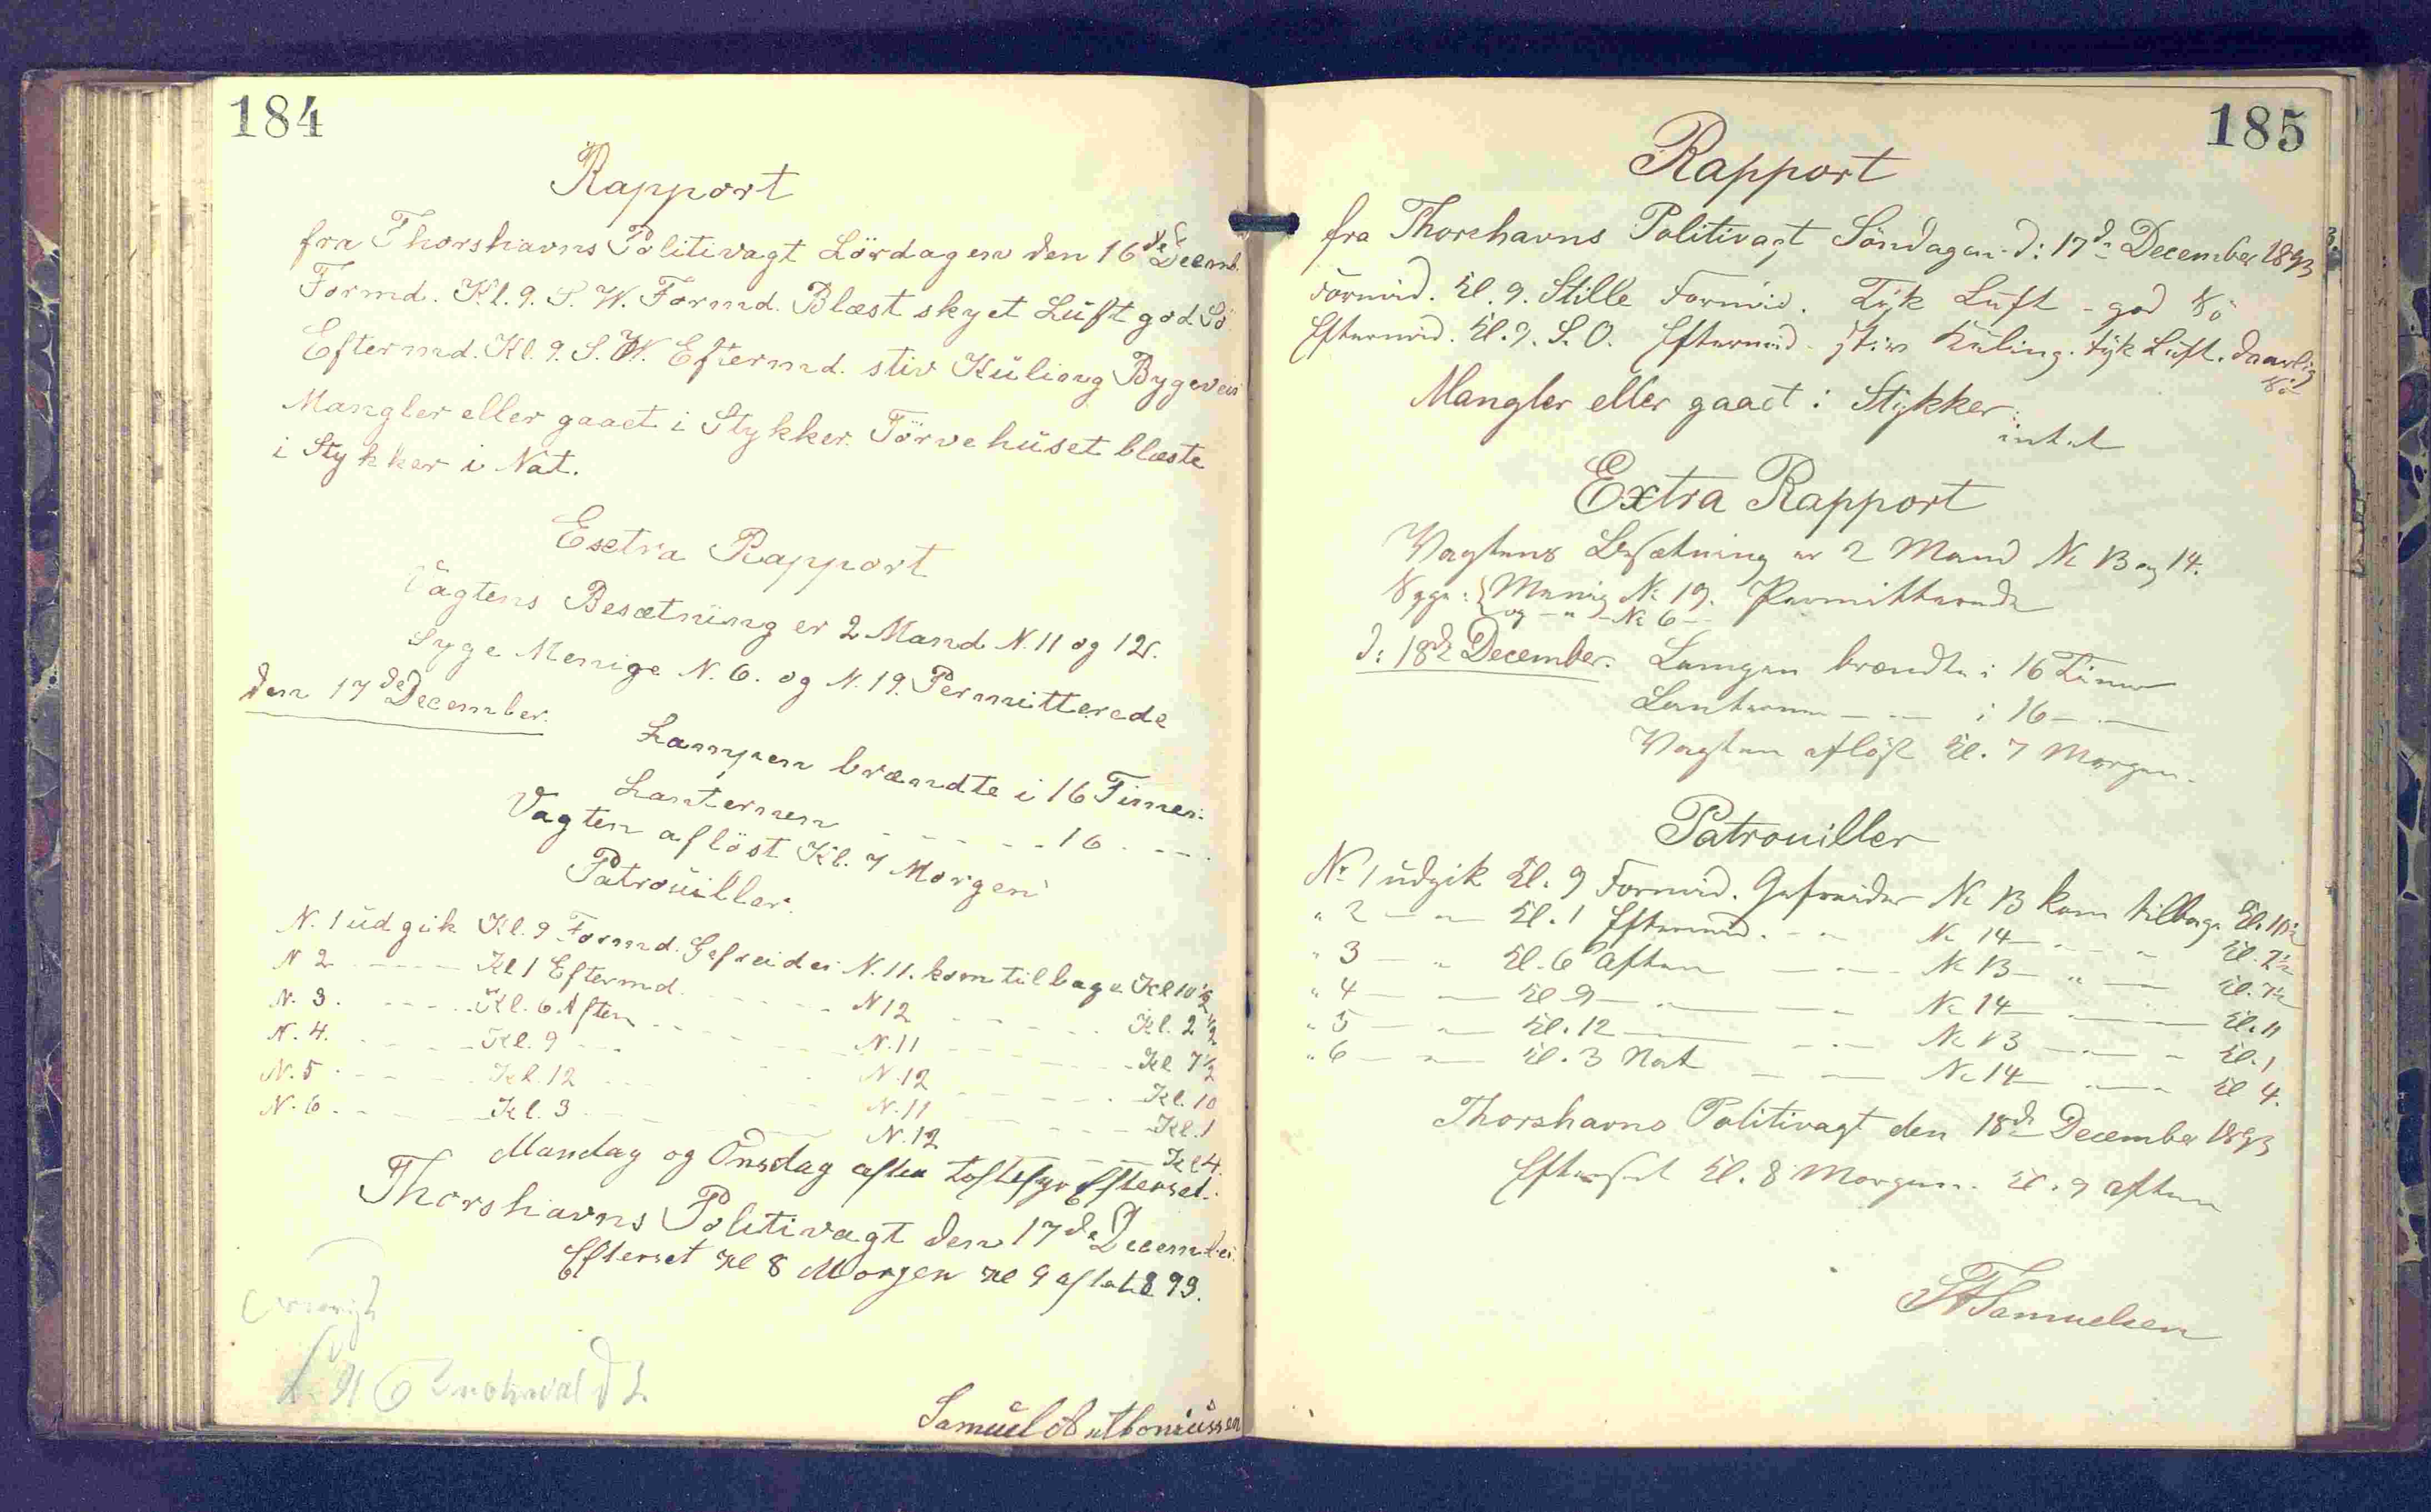 184
Rapport
fra Thorshavns Politivagt Lördagen den 16de Decemb.
Formd. Kl. 9. S. W. Formd. Blæst skyet Luft god Sö
Eftermd. Kl. 9. S. W. Eftermd. stiv Kuling Bygeveir
Mangler eller gaaet i Stykker. Törvehuset blæste
i Stykker i Nat.
Extra Rapport
Vagtens Besætning er 2 Mand N. 11 og 12.
Syge Menige N. 6. og N. 19. Permitterede
den 17de December.
Lampen brændte i 16 Timer.
Lanternen - - - - - 16 - - -
Vagten aflöst Kl. 7 Morgen
Patrouiller.
N. 1 udgik Kl. 9 Formd. Gefreider N. 11. kom tilbage Kl 10 1/2
N 2 - - - - Kl 1 Eftermd. - - - - N 12 - - - - Kl. 2 1/2
N. 3. - - - Kl. 6 Aften - - - - N. 11 - - - - Kl 7 1/2
N. 4. - - - - Kl. 9 - - - - N. 12 - - - - Kl. 10
N. 5 - - - - Kl. 12 - - - - N. 11 - - - - Kl. 1
N. 6. - - - - Kl. 3 - - - - N. 12 - - - - Kl 4.
Mandag og Onsdag aften Efterset.
Thorshavns Politivagt den 17de December
Efterset Kl 8 Morgen Kl 9 aften 1893.
Samuel
185
Rapport
fra Thorshavns Politivagt Söndagen d: 17de December 1893
Formid. Kl. 9. Stille Formid. Tyk Luft - god Sö
Eftermid. Kl. 9. S. O. Eftermid. stiv Kuling. tyk Luft. daarlig
Sö
Mangler eller gaaet i Stykker:
intet
Extra Rapport
Vagtens Besætning er 2 Mand No 13 og 14.
Syge: Menig No 19. Permitterede
og - " - No 6 -
d: 18de December. Lampen brændte i 16 Timer
Lanternen - - - i 16 - - -
Vagten aflöst Kl. 7 Morgen.
Patrouiller
No 1 udgik Kl. 9 Formid. Gefreider No 13 kom tilbage Kl. 10 1/2
" 2 - " - Kl. 1 Eftermid. - - No 14 - - - Kl. 2 1/2
" 3 - " Kl. 6 Aften - - - No 13 - " - Kl. 7 1/2
" 4 - - Kl 9 - - - No 14 - - Kl. 11
" 5 - " - Kl. 12 - - - No 13 - - - Kl. 1
" 6 - " - Kl. 3 Nat - - No 14 - - - Kl 4.
Thorshavns Politivagt den 18de December 1893
Efterset Kl. 8 Morgen. Kl. 9 aften
Samuelsen